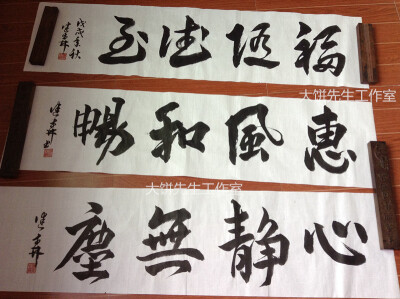 福随德至
戊戌季秋
大饼先生工作室
惠風和暢
大饼先生工作室
心静無塵